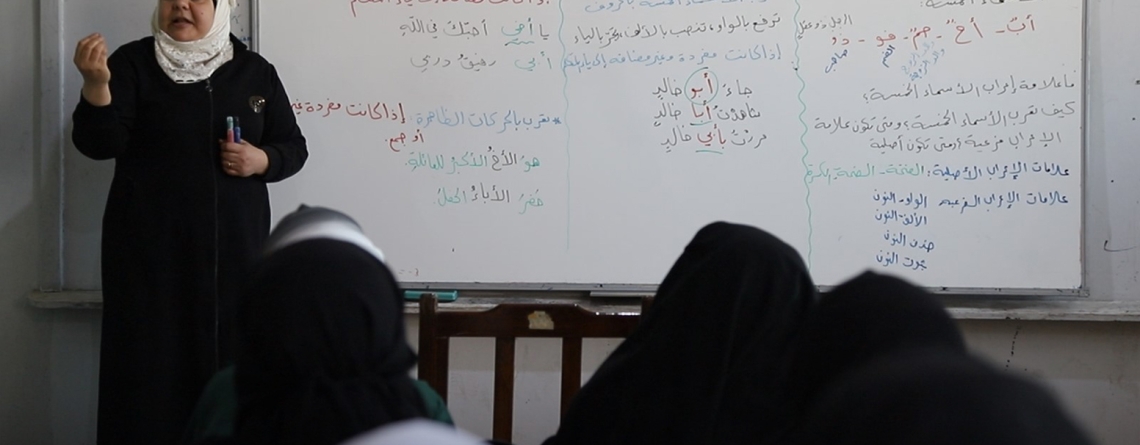 الخمسة:
أبٌ - أخٌ - حمٌ - فو - ذو
الفم
صاحب
ما علامة إعراب الأسماء الخمسة؟
كيف تعرب الأسماء الخمسة؟ ومتى تكون علامة
الإعراب فرعية ومتى تكون أصلية
علامات الإعراب الأصلية: الفتحة - الضمة - الكسرة
علامات الإعراب الفرعية الواو - النون
الألف - النون
حذف النون
ثبوت النون
ترفع بالواو، تنصب بالألف، تجر بالياء
إذا كانت مفردة وغير مضافة إلى ياء
جاءَ أبو خالدٍ
شاهدتُ أبا خالدٍ
مررتُ بأبي خالدٍ
يا أخي أحبّكَ في اللّهِ
أبي رفيقُ دربي
* تعرب بالحركات الظاهرة: إذا كانت مفردة غير
أو جمع.
هوَ الأخُ الأكبرُ للعائلةِ.
حضرَ الأباءُ الحفلَ.